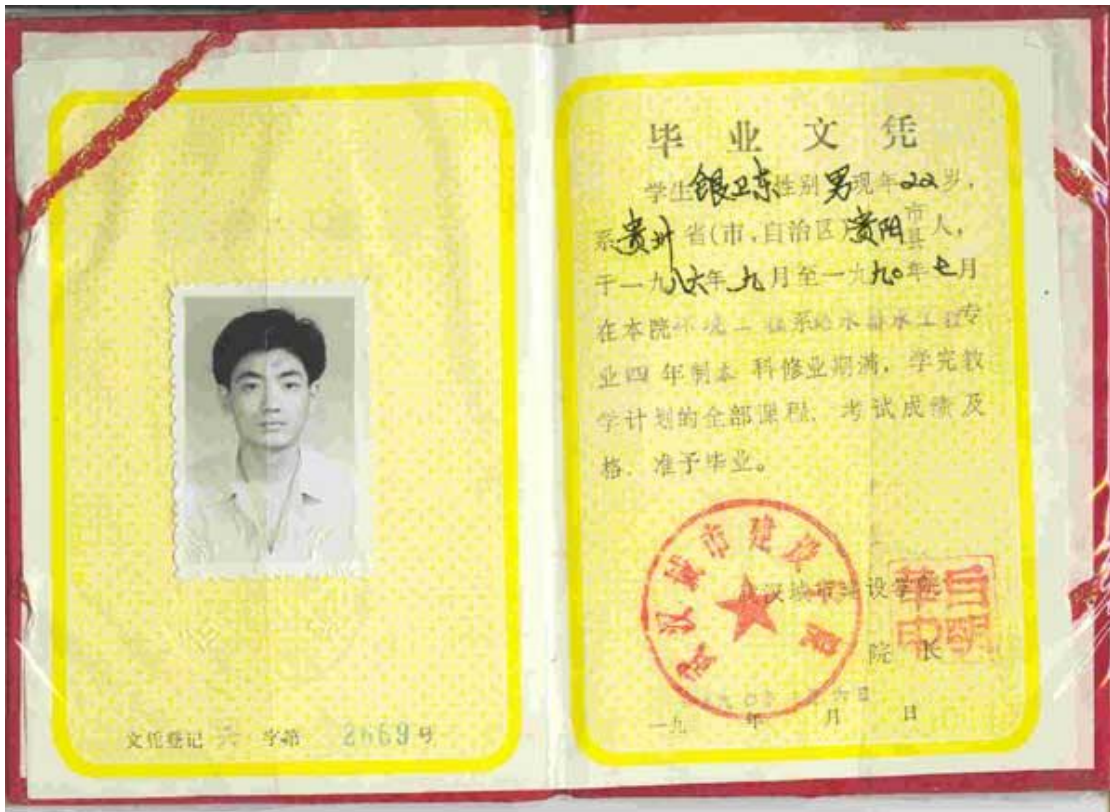 文凭登记 字第 2669号
毕业文凭
学生银卫东性别男现年22岁，
系贵州省(市、自治区)贵阳市县人，
于一九八六年九月至一九九〇年七月
在本院环境工程系给水排水工程专
业四年制本科修业期满，学完教
学计划的全部课程，考试成绩及
格，准予毕业。
武汉城市建设学院
武汉城市建设学院
院长
一九 年 月 日